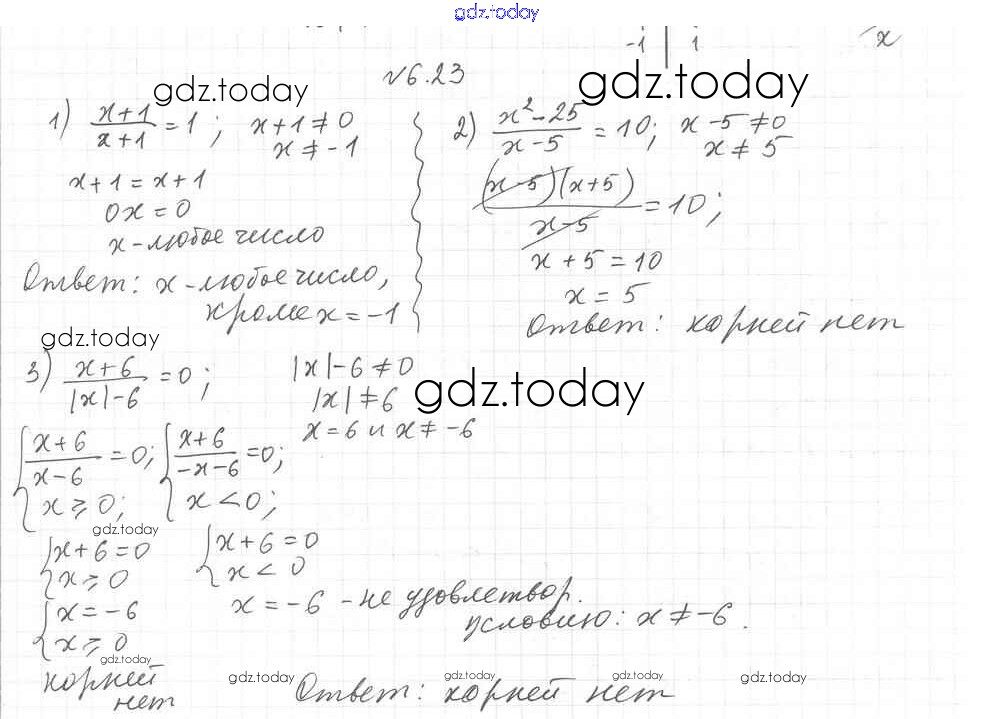 gdz.today
-1 | 1 x
№6.23
gdz.today gdz.today
1) (x+1)/(x+1) = 1; x+1≠0
x≠-1
x+1=x+1
0x=0
x-любое число
Ответ: x-любое число,
кроме x=-1
2) (x²-25)/(x-5) = 10; x-5≠0
x≠5
((x-5)(x+5))/(x-5) = 10;
x+5=10
x=5
Ответ: корней нет
gdz.today
3) (x+6)/(|x|-6) = 0; |x|-6≠0
|x|≠6
gdz.today
x=6 и x≠-6
{ (x+6)/(x-6) = 0; { (x+6)/(-x-6) = 0;
x⩾0; x<0;
gdz.today
{ x+6=0 { x+6=0
x⩾0 x<0
{ x=-6 x=-6 - не удовлетвор.
x⩾0 условию: x≠-6.
gdz.today
корней
нет
gdz.today gdz.today gdz.today gdz.today
Ответ: корней нет